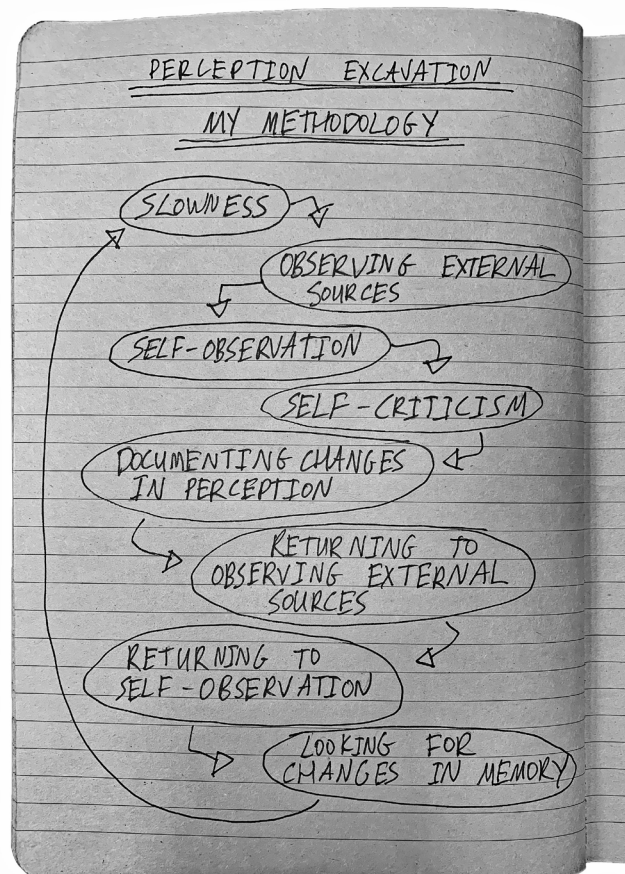 PERCEPTION EXCAVATION
MY METHODOLOGY
SLOWNESS
OBSERVING EXTERNAL
SOURCES
SELF-OBSERVATION
SELF-CRITICISM
DOCUMENTING CHANGES
IN PERCEPTION
RETURNING TO
OBSERVING EXTERNAL
SOURCES
RETURNING TO
SELF-OBSERVATION
LOOKING FOR
CHANGES IN MEMORY